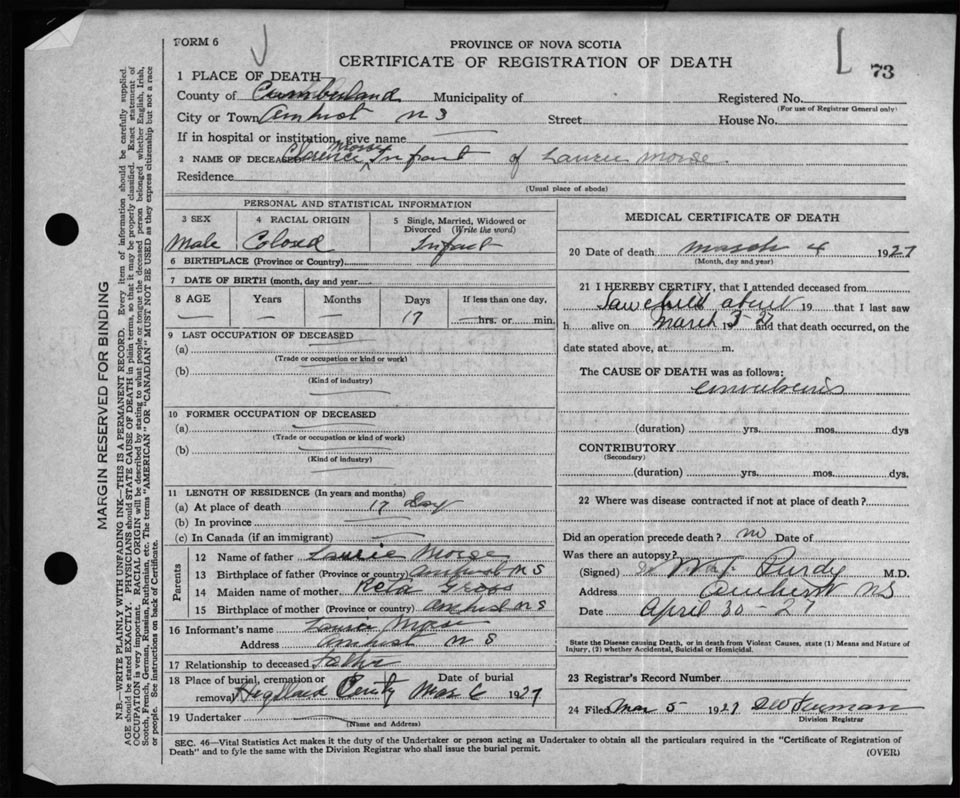 FORM 6
PROVINCE OF NOVA SCOTIA
CERTIFICATE OF REGISTRATION OF DEATH
73
1 PLACE OF DEATH
County of Cumberland Municipality of Registered No.
(For use of Registrar General only)
City or Town Amherst N S Street House No.
If in hospital or institution, give name
2 NAME OF DECEASED Clarence Morse Infant of Laurie Morse
Residence
(Usual place of abode)
PERSONAL AND STATISTICAL INFORMATION
3 SEX 4 RACIAL ORIGIN 5 Single, Married, Widowed or Divorced (Write the word)
Male Colored Infant
6 BIRTHPLACE (Province or Country)
7 DATE OF BIRTH (month, day and year)
8 AGE Years Months Days If less than one day,
— — — 17 hrs. or min.
9 LAST OCCUPATION OF DECEASED
(a)
(Trade or occupation or kind or work)
(b)
(Kind of industry)
10 FORMER OCCUPATION OF DECEASED
(a)
(Trade or occupation or kind of work)
(b)
(Kind of industry)
11 LENGTH OF RESIDENCE (In years and months)
(a) At place of death 17 day
(b) In province
(c) In Canada (if an immigrant)
Parents
12 Name of father Laurie Morse
13 Birthplace of father (Province or country) Amherst N S
14 Maiden name of mother Reta Gross
15 Birthplace of mother (Province or country) Amherst N S
16 Informant's name Laurie Morse
Address Amherst N S
17 Relationship to deceased Father
18 Place of burial, cremation or removal Highland Cemty Date of burial Mar 6 1927
19 Undertaker
(Name and Address)
MEDICAL CERTIFICATE OF DEATH
20 Date of death March 4 1927
(Month, day and year)
21 I HEREBY CERTIFY, that I attended deceased from
Saw child about 19 that I last saw
h alive on March 3 - 27 and that death occurred, on the
date stated above, at m.
The CAUSE OF DEATH was as follows:
Convulsions
(duration) yrs. mos. dys
CONTRIBUTORY
(Secondary)
(duration) yrs. mos. dys.
22 Where was disease contracted if not at place of death?
Did an operation precede death? no Date of
Was there an autopsy?
(Signed) Purdy M.D.
Address Amherst NS
Date April 30 - 27
State the Disease causing Death, or in death from Violent Causes, state (1) Means and Nature of
Injury, (2) whether Accidental, Suicidal or Homicidal.
23 Registrar's Record Number
24 Filed Mar 5 1927
Division Registrar
SEC. 46—Vital Statistics Act makes it the duty of the Undertaker or person acting as Undertaker to obtain all the particulars required in the "Certificate of Registration of
Death" and to fyle the same with the Division Registrar who shall issue the burial permit.
(OVER)
MARGIN RESERVED FOR BINDING
N.B.—WRITE PLAINLY WITH UNFADING INK—THIS IS A PERMANENT RECORD. Every item of information should be carefully supplied.
AGE should be stated EXACTLY. PHYSICIANS should STATE CAUSE OF DEATH in plain terms, so that it may be properly classified. Exact statement of
OCCUPATION is very important. RACIAL ORIGIN will be described by stating to what people or tongue the deceased person belonged whether English, Irish,
Scotch, French, German, Russian, Ruthenian, etc. The terms "AMERICAN" OR "CANADIAN" MUST NOT BE USED as they express citizenship but not a race
or people. See instructions on back of Certificate.